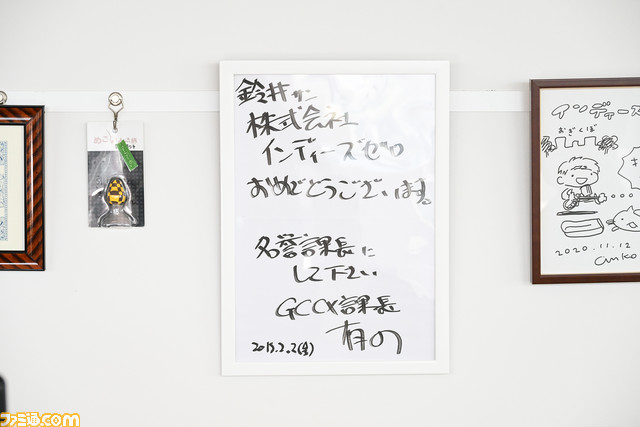 鈴井サン
株式会社
インディーズゼロ
おめでとうございます。
名誉課長に
して下さい
GCCX課長
有の
インディーズ
おぎくぼ
2020.11.12
ファミ通.com